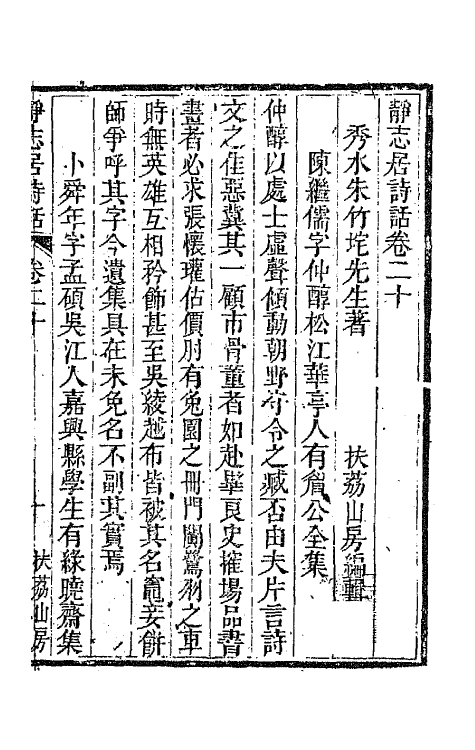 靜志居詩話卷二十
秀水朱竹垞先生著　扶荔山房編輯
陳繼儒字仲醇松江華亭人有眉公全集
仲醇以處士虛聲傾動朝野守令之臧否由夫片言詩
文之佳惡冀其一顧市骨董者如赴畢良史搉場品書
畫者必求張懷瓘估價肘有兔園之冊門闐鷺羽之車
時無英雄互相矜飾甚至吳綾越布皆被其名竈妾餅
師爭呼其字今遺集具在未免名不副其實焉
卜舜年字孟碩吳江人嘉興縣學生有綠曉齋集
靜志居詩話　卷二十　一　扶荔山房